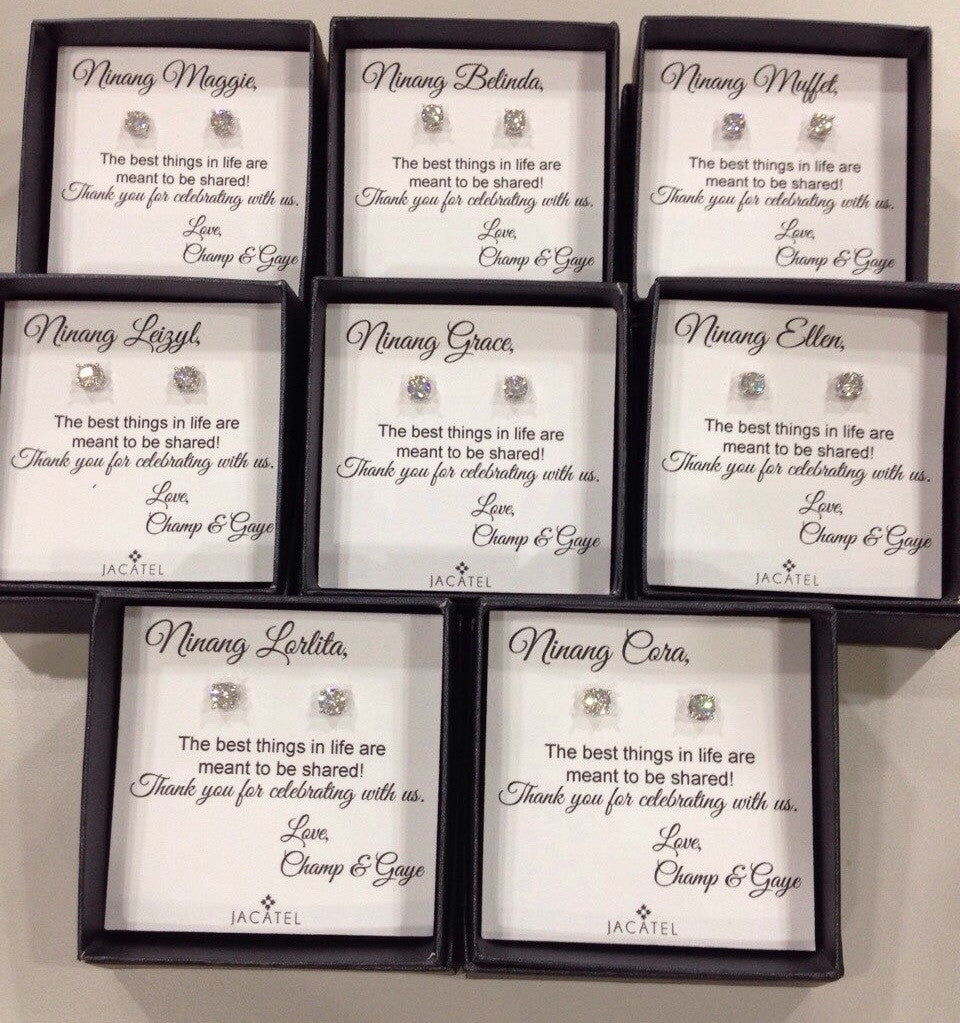 Ninang Maggie,
The best things in life are
meant to be shared!
Thank you for celebrating with us.
Love,
Champ & Gaye
Ninang Belinda,
The best things in life are
meant to be shared!
Thank you for celebrating with us.
Love,
Champ & Gaye
Ninang Muffet,
The best things in life are
meant to be shared!
Thank you for celebrating with us.
Love,
Champ & Gaye
Ninang Leizyl,
The best things in life are
meant to be shared!
Thank you for celebrating with us.
Love,
Champ & Gaye
JACATEL
Ninang Grace,
The best things in life are
meant to be shared!
Thank you for celebrating with us.
Love,
Champ & Gaye
JACATEL
Ninang Ellen,
The best things in life are
meant to be shared!
Thank you for celebrating with us.
Love,
Champ & Gaye
JACATEL
Ninang Lorlita,
The best things in life are
meant to be shared!
Thank you for celebrating with us.
Love,
Champ & Gaye
JACATEL
Ninang Cora,
The best things in life are
meant to be shared!
Thank you for celebrating with us.
Love,
Champ & Gaye
JACATEL